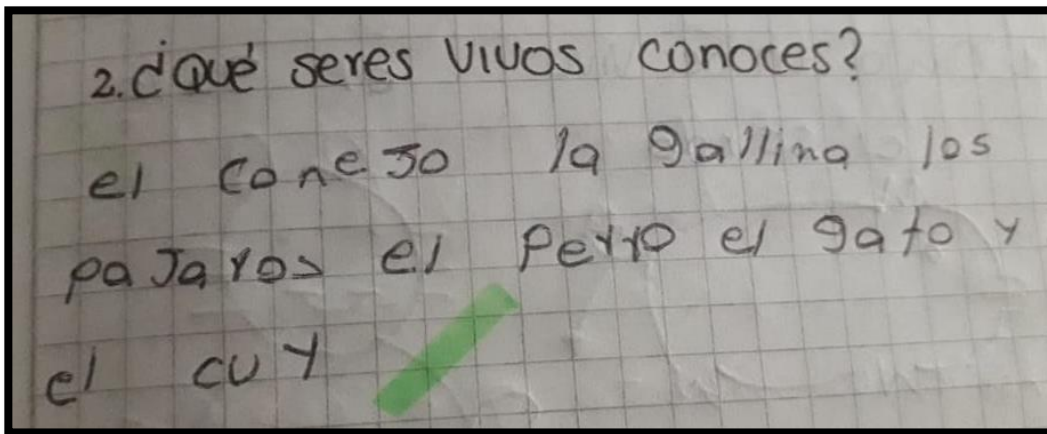 2. ¿Qué seres vivos conoces?
el coneJo la gallina los
paJaros el perro el gato y
el cuy